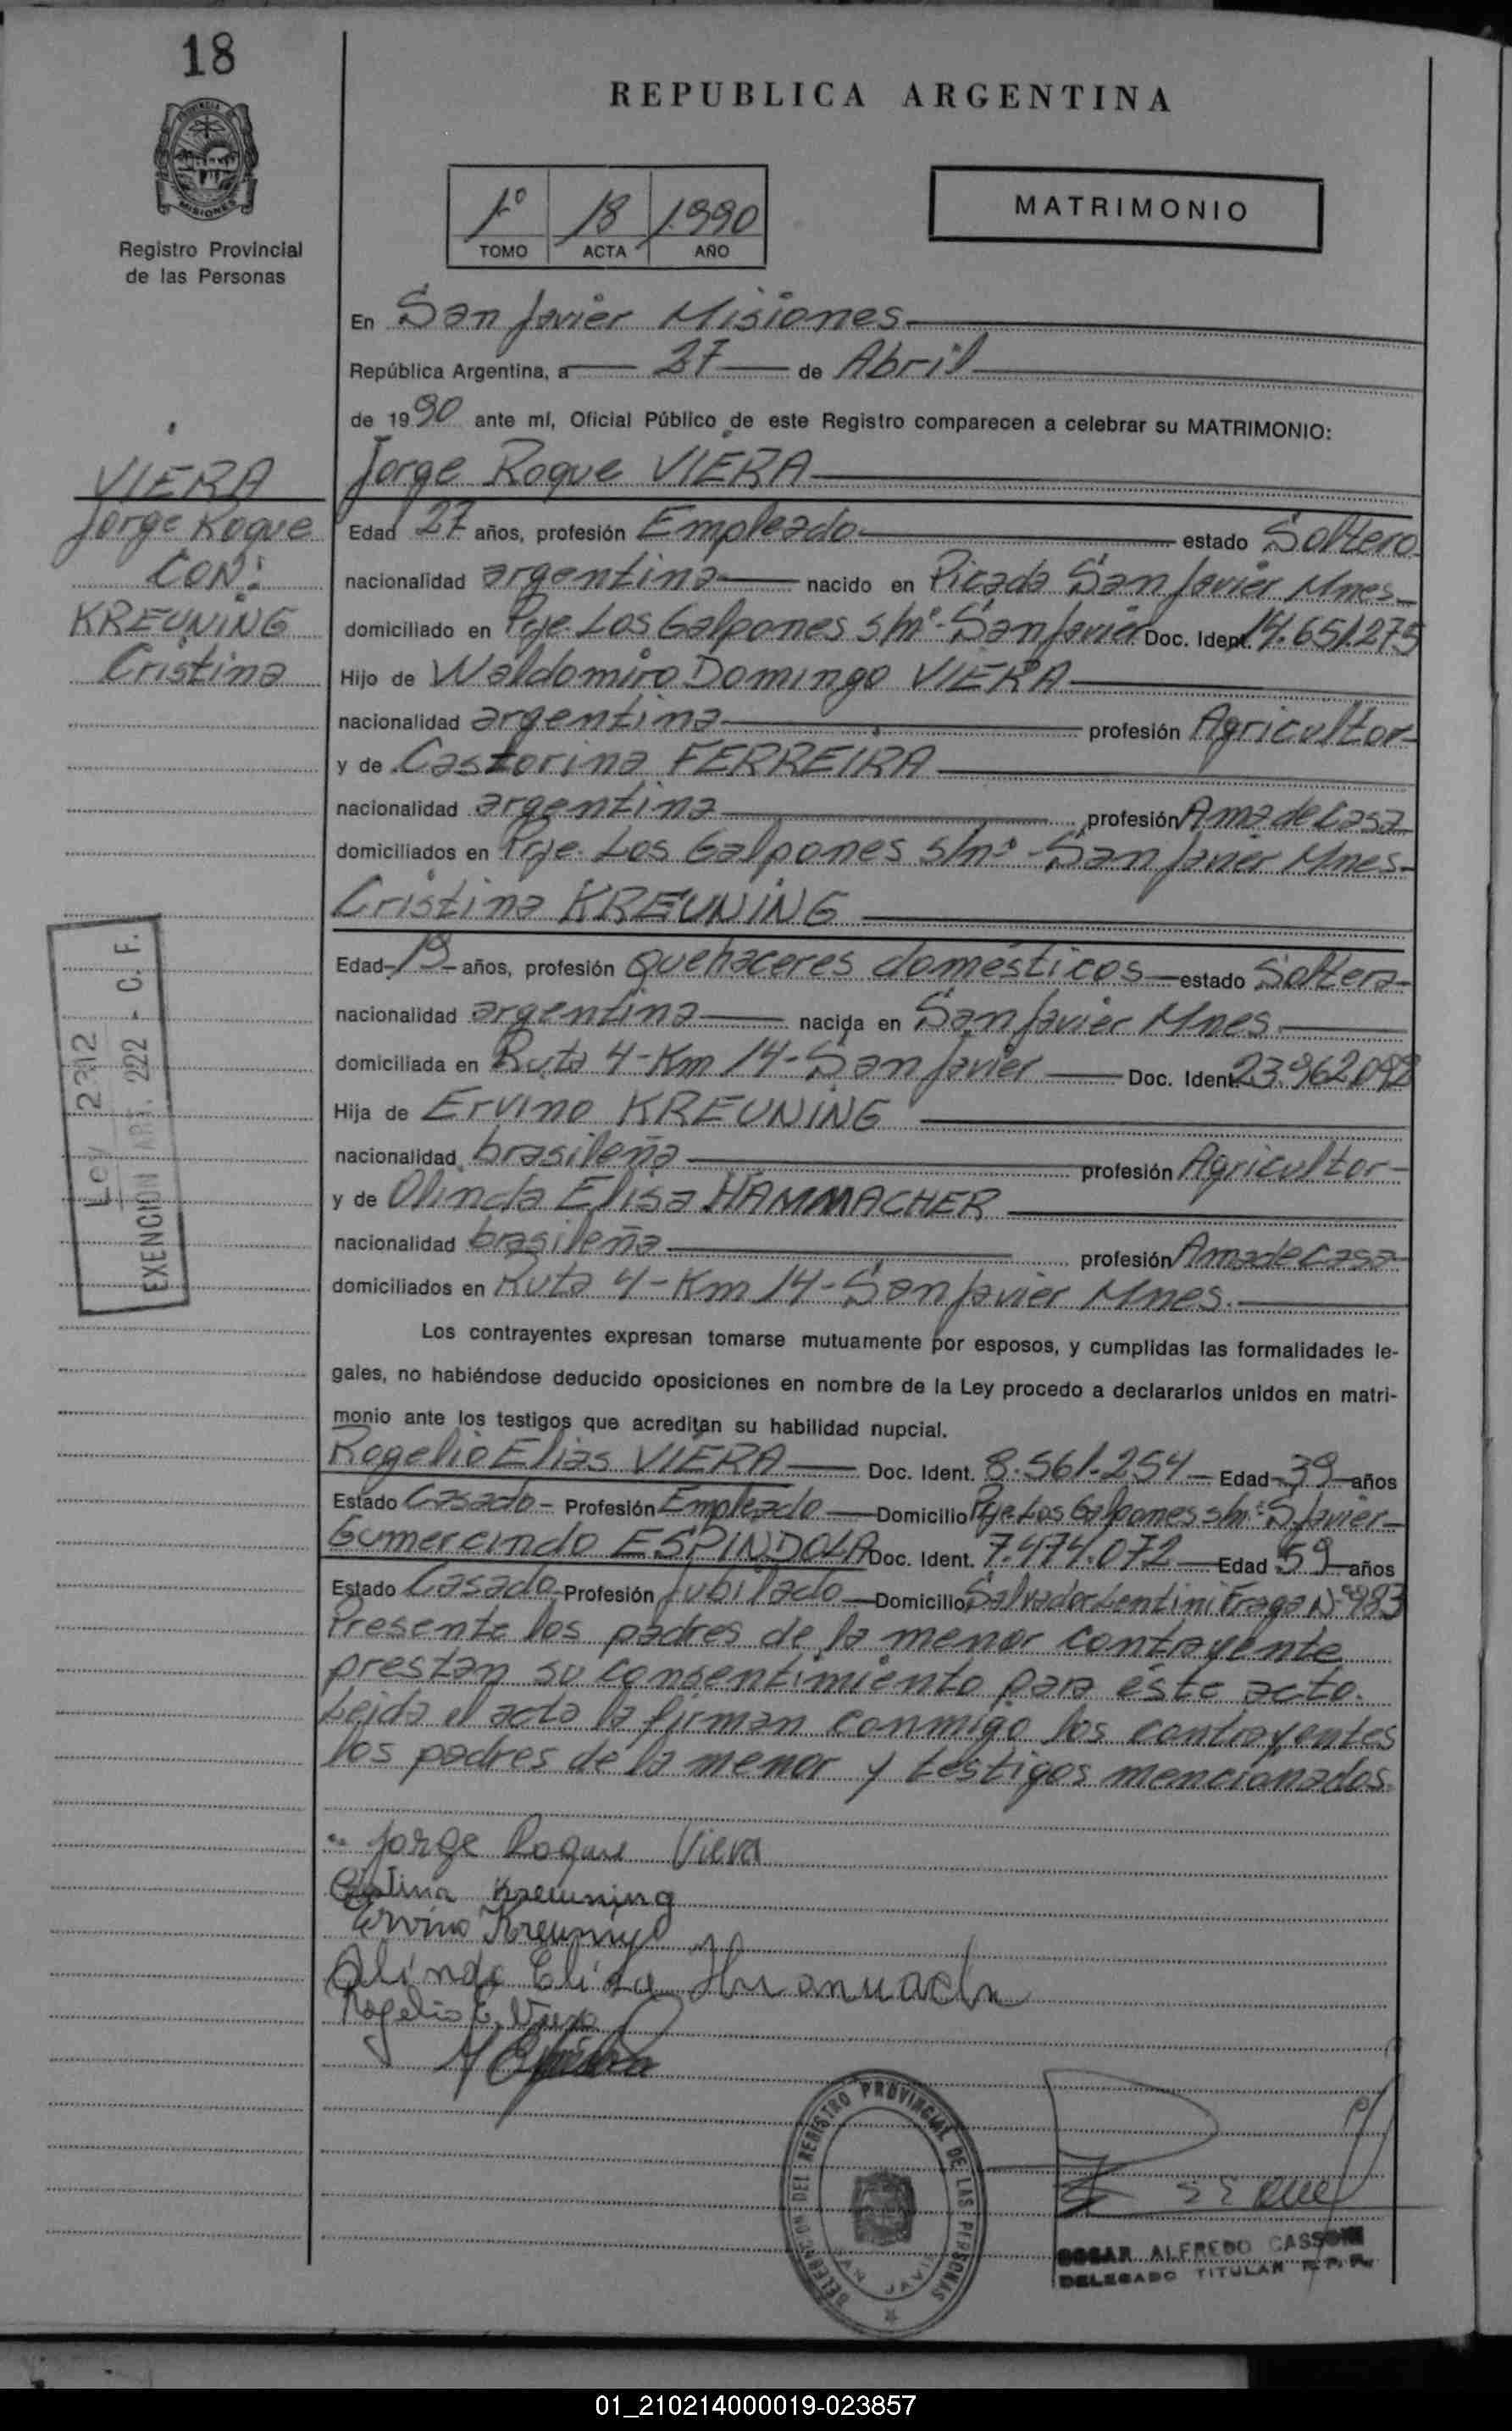 18
REPUBLICA ARGENTINA
PROVINCIA DE
MISIONES
Registro Provincial
de las Personas
1º 18 1.990
TOMO ACTA AÑO
MATRIMONIO
En San Javier Misiones
República Argentina, a 27 de Abril
de 1990 ante mí, Oficial Público de este Registro comparecen a celebrar su MATRIMONIO:
VIERA
Jorge Roque
CON:
KREUNING
Cristina
Jorge Roque VIERA
Edad 27 años, profesión Empleado estado Soltero
nacionalidad argentina nacido en Picada San Javier Mnes
domiciliado en Pje. Los Galpones s/nº - San Javier Doc. Ident. 14.651.275
Hijo de Waldomiro Domingo VIERA
nacionalidad argentina profesión Agricultor
y de Castorina FERREIRA
nacionalidad argentina profesión Ama de Casa
domiciliados en Pje. Los Galpones s/nº - San Javier Mnes-
Cristina KREUNING
Edad 19 años, profesión quehaceres domésticos estado Soltera
nacionalidad argentina nacida en San Javier Mnes
domiciliada en Ruta 4 - Km 14 - San Javier Doc. Ident. 23.962.098
Hija de Ervino KREUNING
nacionalidad brasileña profesión Agricultor
y de Olinda Elisa HAMMACHER
nacionalidad brasileña profesión Ama de Casa
domiciliados en Ruta 4 - Km 14 - San Javier Mnes.
Ley 2312
EXENCION ART. 222 - C. F.
Los contrayentes expresan tomarse mutuamente por esposos, y cumplidas las formalidades le-
gales, no habiéndose deducido oposiciones en nombre de la Ley procedo a declararlos unidos en matri-
monio ante los testigos que acreditan su habilidad nupcial.
Rogelio Elias VIERA Doc. Ident. 8.561.254 Edad 39 años
Estado Casado - Profesión Empleado Domicilio Pje Los Galpones s/nº S. Javier
Gumercindo ESPINDOLA Doc. Ident. 7.474.072 Edad 59 años
Estado Casado Profesión Jubilado Domicilio Salvador Lentini Fraga Nº 983
Presente los padres de la menor contrayente
prestan su consentimiento para éste acto.
Leida el acta la firman conmigo los contrayentes
los padres de la menor y testigos mencionados.
Jorge Roque Viera
Cristina Kreuning
Ervino Kreuning
Olinda Elisa
Rogelio E. Viera
DELEGACION DEL REGISTRO PROVINCIAL DE LAS PERSONAS
SAN JAVIER
ALFREDO CASSONI
DELEGADO TITULAR R. P. P.
01_210214000019-023857